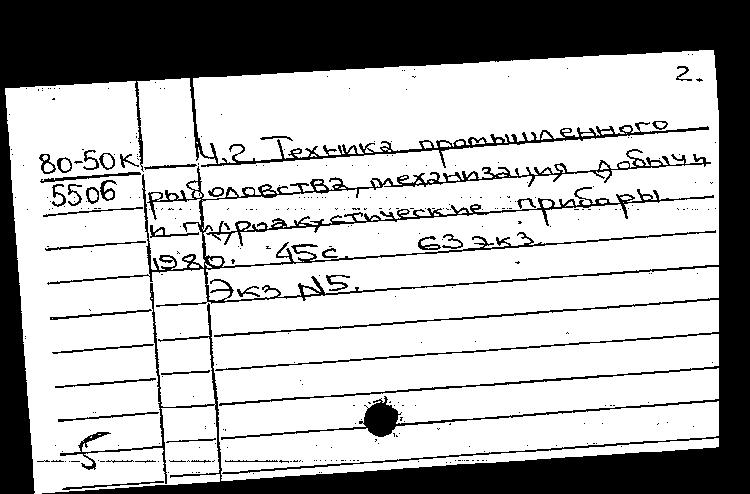 2.
80-50к Ч.2. Техника промышленного
5506 рыболовства, механизация добычи
и гидроакустические прибары.
1980. 45с. 63 экз.
Экз N5.
5